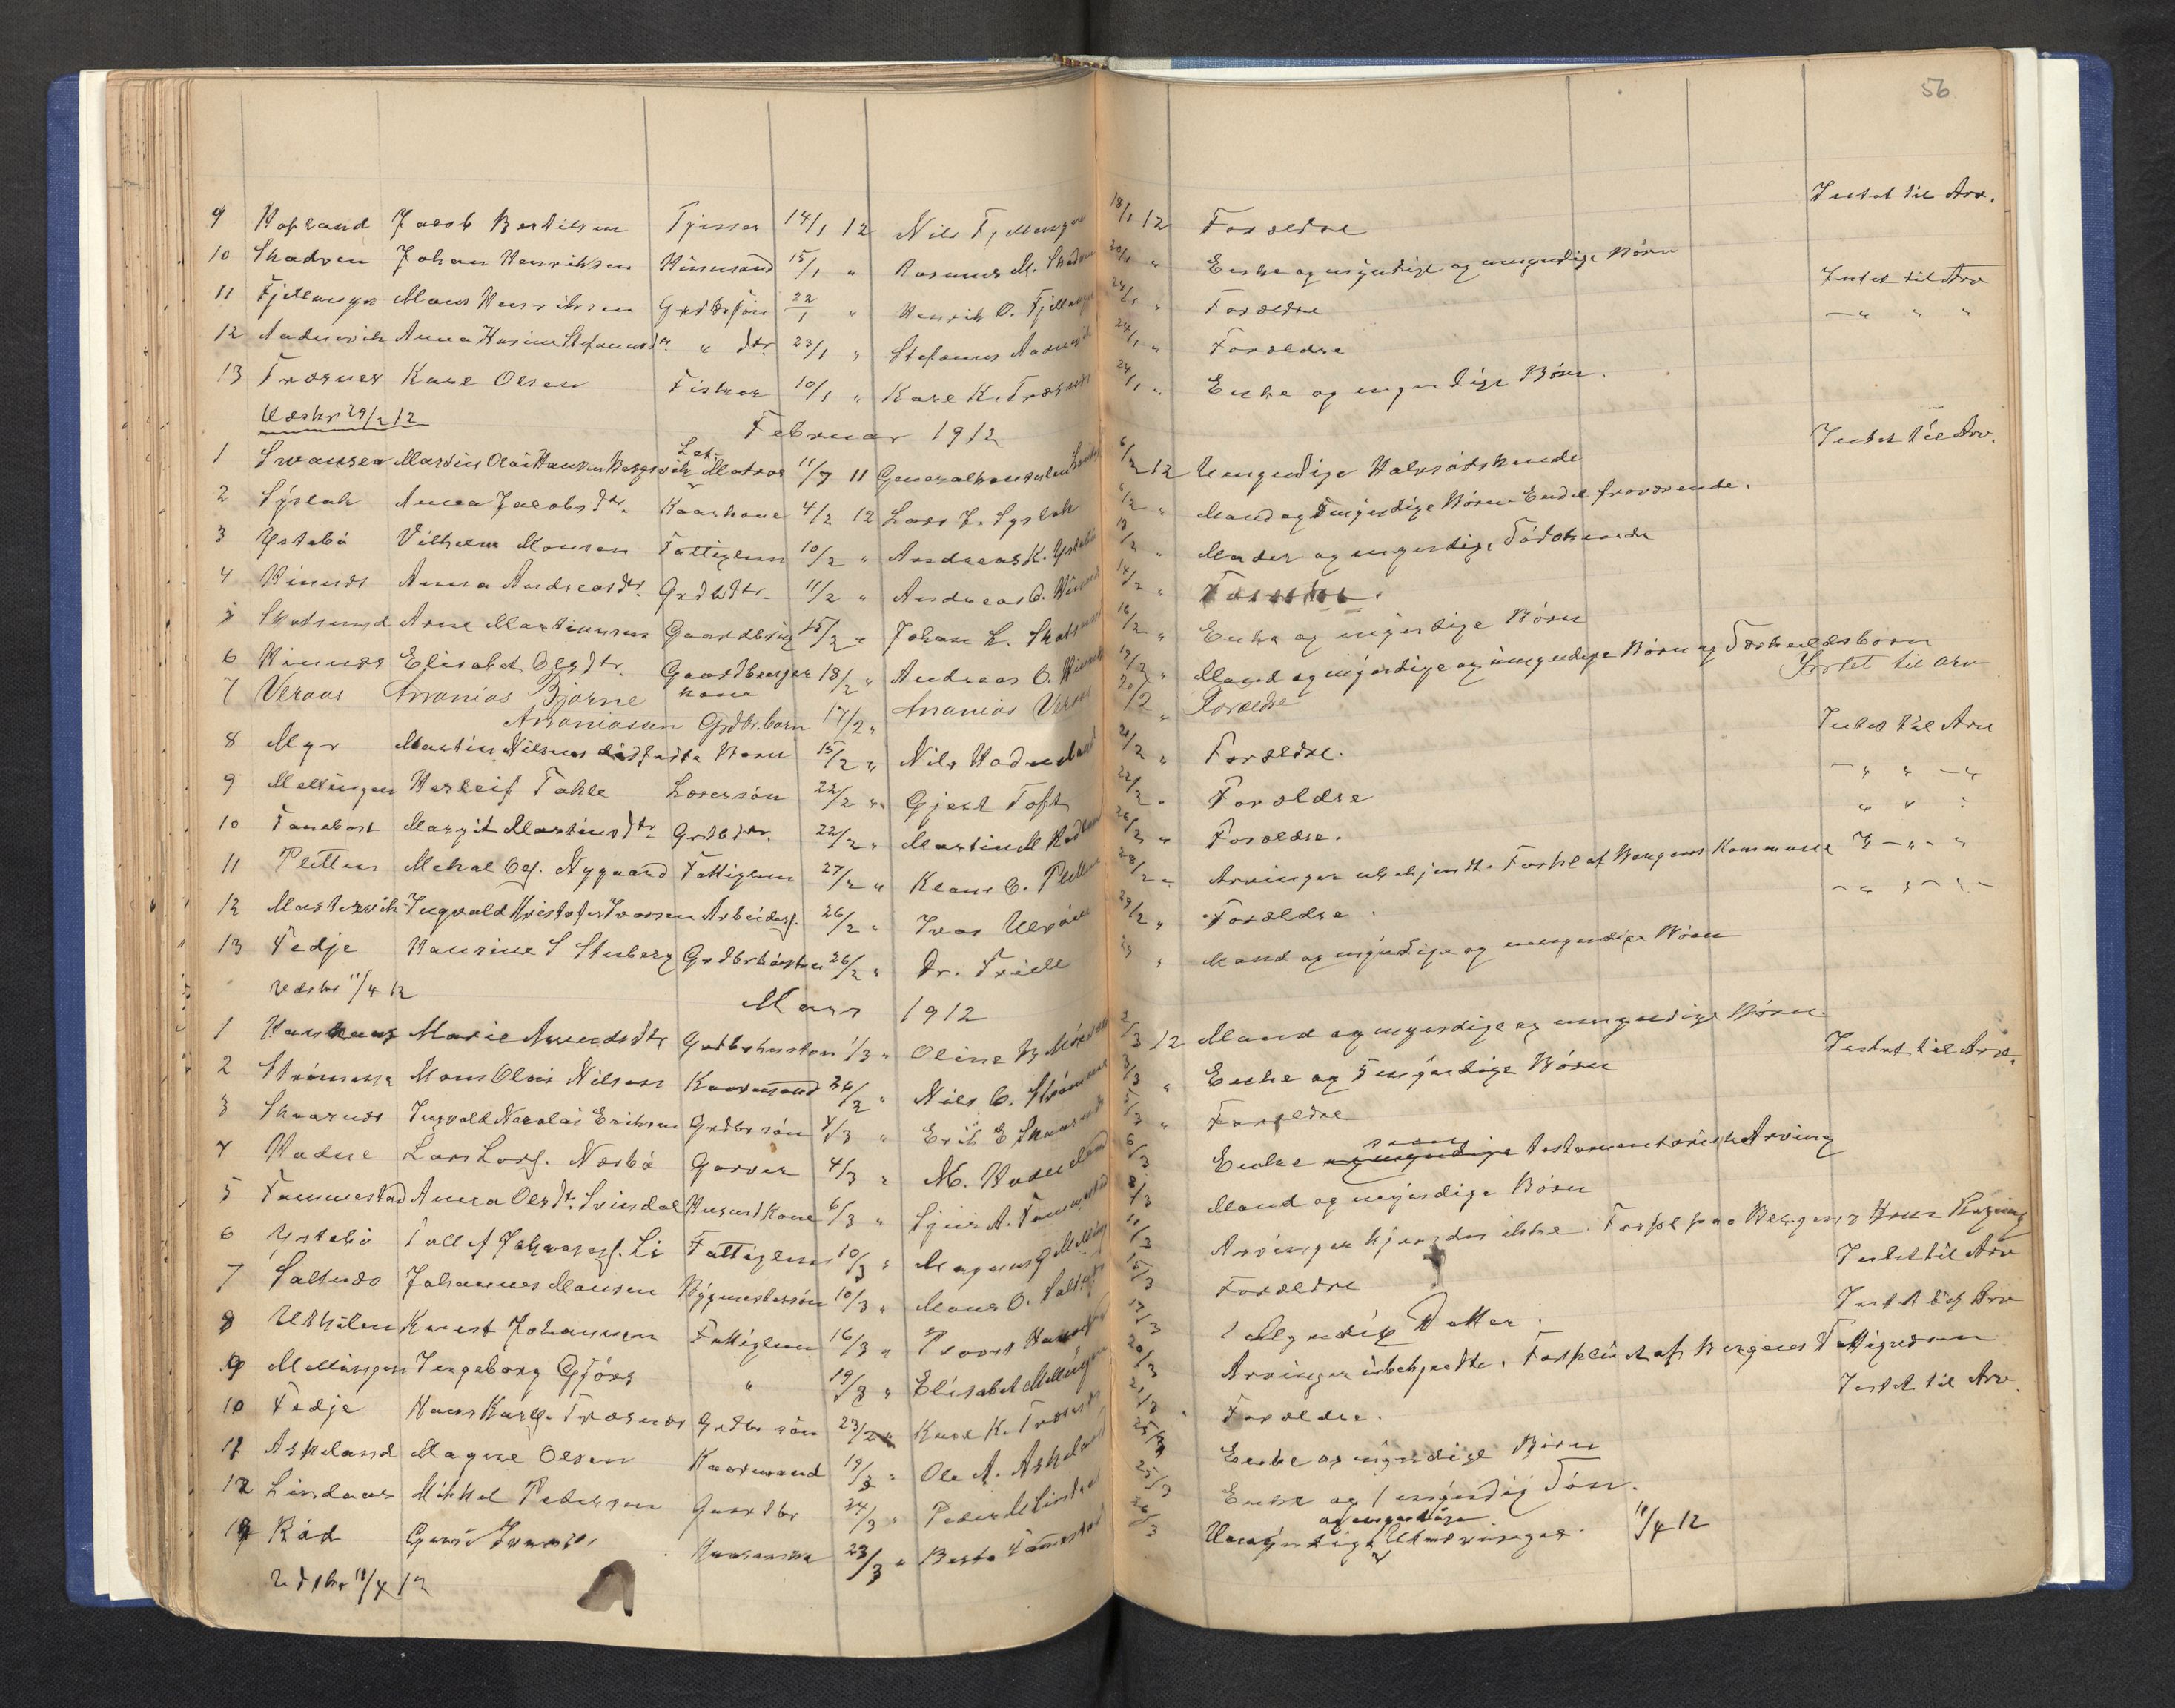 56
9 Hopland Jacob Bertilsen Tjener 14/1 12 Nils Fjellanger 18/1 12 Forældre Intet til Arv.
10 Skadven Johan Henriksen Husmand 15/1 " Rasmus M. Skadven 20/1 " Enke og myndige og umyndige Børn
11 Fjellanger Mons Henriksen Grdbrsøn 22/1 " Henrik O. Fjellanger 24/1 " Forældre Intet til Arv
12 Andersvik Anna Karine Stefanusdtr. " dtr. 23/1 " Stefanus 24/1 " Forældre — " " "
13 Træsnes Karl Olsen Fisker 10/1 " Karl K. Træsnes 24/1 " Enke og myndige Børn.
Udskr 29/2 12
Februar 1912
1 Swansea Martin Olai Hansen Let- Matros 11/7 11 Generalkonsulen 6/2 12 Umyndige Halvsødskende Intet til Arv.
2 Syslak Anna Jacobsdtr. Kaarkone 4/2 12 Lars J. Syslak 6/2 " Mand og myndige Børn Endel fraværende.
3 Ystebø Vilhelm Monsen Fattiglem 10/2 " Andreas K. Ystebø 13/2 " Moder og myndige Sødskende
4 Hinnes Anna Andreasdtr. Grdbdtr. 11/2 " Andreas O. Hinnes 14/2 " Forældre.
5 Skotsund Arne Martinussen Gaardbrug 15/2 " Johan L. 16/2 " Enke og myndige Børn
6 Hinnes Elisabet Olsdtr. Gaardbruger kone 18/2 " Andreas O. Hinnes 19/2 " Mand og myndige og umyndige Børn og Særkuldsbørn
7 Veraas Ananias Bjarne Ananiassen Grdbr. barn 17/2 " Ananias Veraas 20/2 " Forældre Intet til arv
8 Myr Martin Nilsens barn 15/2 " Nils Hodneland 21/2 " Forældre. Intet til Arv
9 Mellingen Herleif Tahle Lærersøn 22/2 " Gjert Toft 22/2 " Forældre — " " — "
10 Fanebost Margit Martinsdtr. Grdbdtr. 22/2 " Martin M. 26/2 " Forældre. " " "
11 Pletten Mekal Olsf. Nygaard Fattiglem 27/2 " Klaus O. Pletten 28/2 " Arvinger ubekjendt. Forpl af Bergens Kommune
12 Mastrevik Ingvald Kristofer Ivarsen Arbeidersf. 26/2 " Ivar 29/2 " Forældre.
13 Fedje Hansine S Stuberg Grdbrkaarkone 26/2 " Dr. Friele 29 " Mand og myndige og umyndige Børn
Udskr 11/4 12
Mars 1912
1 Marie Amundsdtr Grdbrhustru 1/3 " Oline B 2/3 12 Mand og myndige og umyndige Børn.
2 Strømmen Mons Olai Nilsen Kaarmand 26/2 " Nils O. Strømme 3/3 " Enke og 5 myndige Børn Intet til Arv.
3 Skaarnes Ingvald Nicolai Eriksen Grdbr søn 4/3 " Erik E Skaarnes 5/3 " Forældre
4 Hodne Lars Larsf. Næsbø Garver 4/3 " M. Hodneland 6/3 Enke samt og myndige testamentarisk Arving
5 Fammestad Anna Olsdtr. Svindal Husmdkone 6/3 " Sjur A. Fammestad 8/3 Mand og myndige Børn
6 Ystebø Tollef Johannesf. Li Fattiglem 10/3 " Magnus 11/3 Arvinger kjendes ikke. Forpl paa Bergens Kom Regning
7 Saltnes Johannes Monsen Bygmestersøn 10/3 " Mons O. Saltnes 15/3 Forældre Intet til Arv
8 Utkilen Knut Johannesen Fattiglem 16/3 " Provst 17/3 1 Myndig Datter. Intet til Arv
9 Mellingen Ingeborg Gjøre " 19/3 " Elisabet Mellingen 20/3 Arvinger ubekjendte. Forpleiet af Bergens Fattigvæsen
10 Fedje Hans Karlf. Træsnes Grdbr søn 23/2 " Karl K. Træsnes 21/3 Forældre. Intet til Arv.
11 Askeland Magne Olsen Kaarmand 19/3 " Ole A. Askeland 25/3 Enke og myndige Børn
12 Lindaas Mikkel Pedersen Gaardbr 24/3 " Peder M Lindaas 25/3 Enke og 1 myndig Søn.
Kaarenke 23/3 " 26/3 Umyndige og myndige Utarvinger. 11/4 12
Udskr 11/4 12